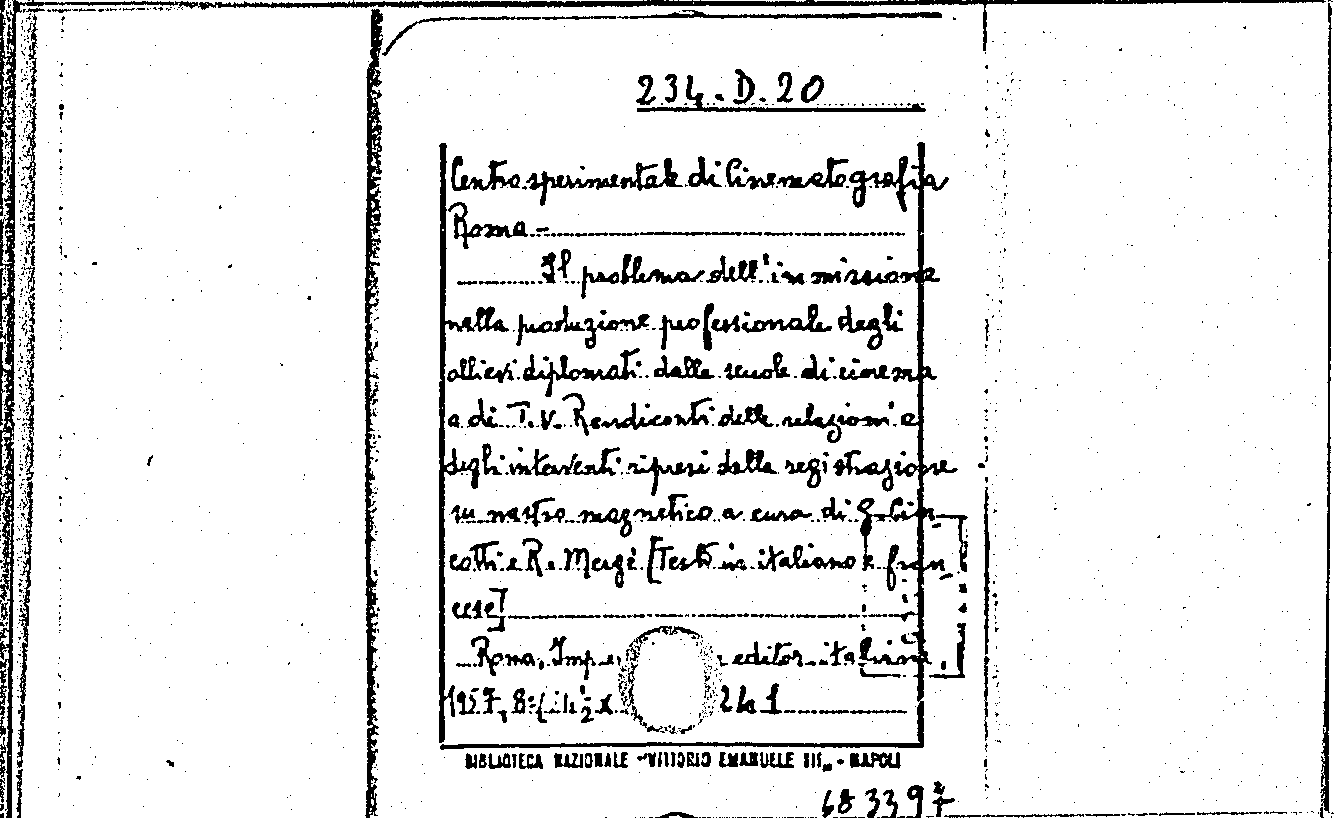 234.D.20
Centro sperimentale di Cinematografia
Roma -
Il problema dell'immissione
nella produzione professionale degli
allievi diplomati dalle scuole di cinema
a di T.V. Rendiconti delle relazioni e
degli interventi ripresi dalla registrazione
su nastro magnetico a cura di G. Cin
cotti e R. Mergè [Testi in italiano e fran
cese]
Roma, editor. italiana,
1957, 8º
BIBLIOTECA NAZIONALE "VITTORIO EMANUELE III" - NAPOLI
683397